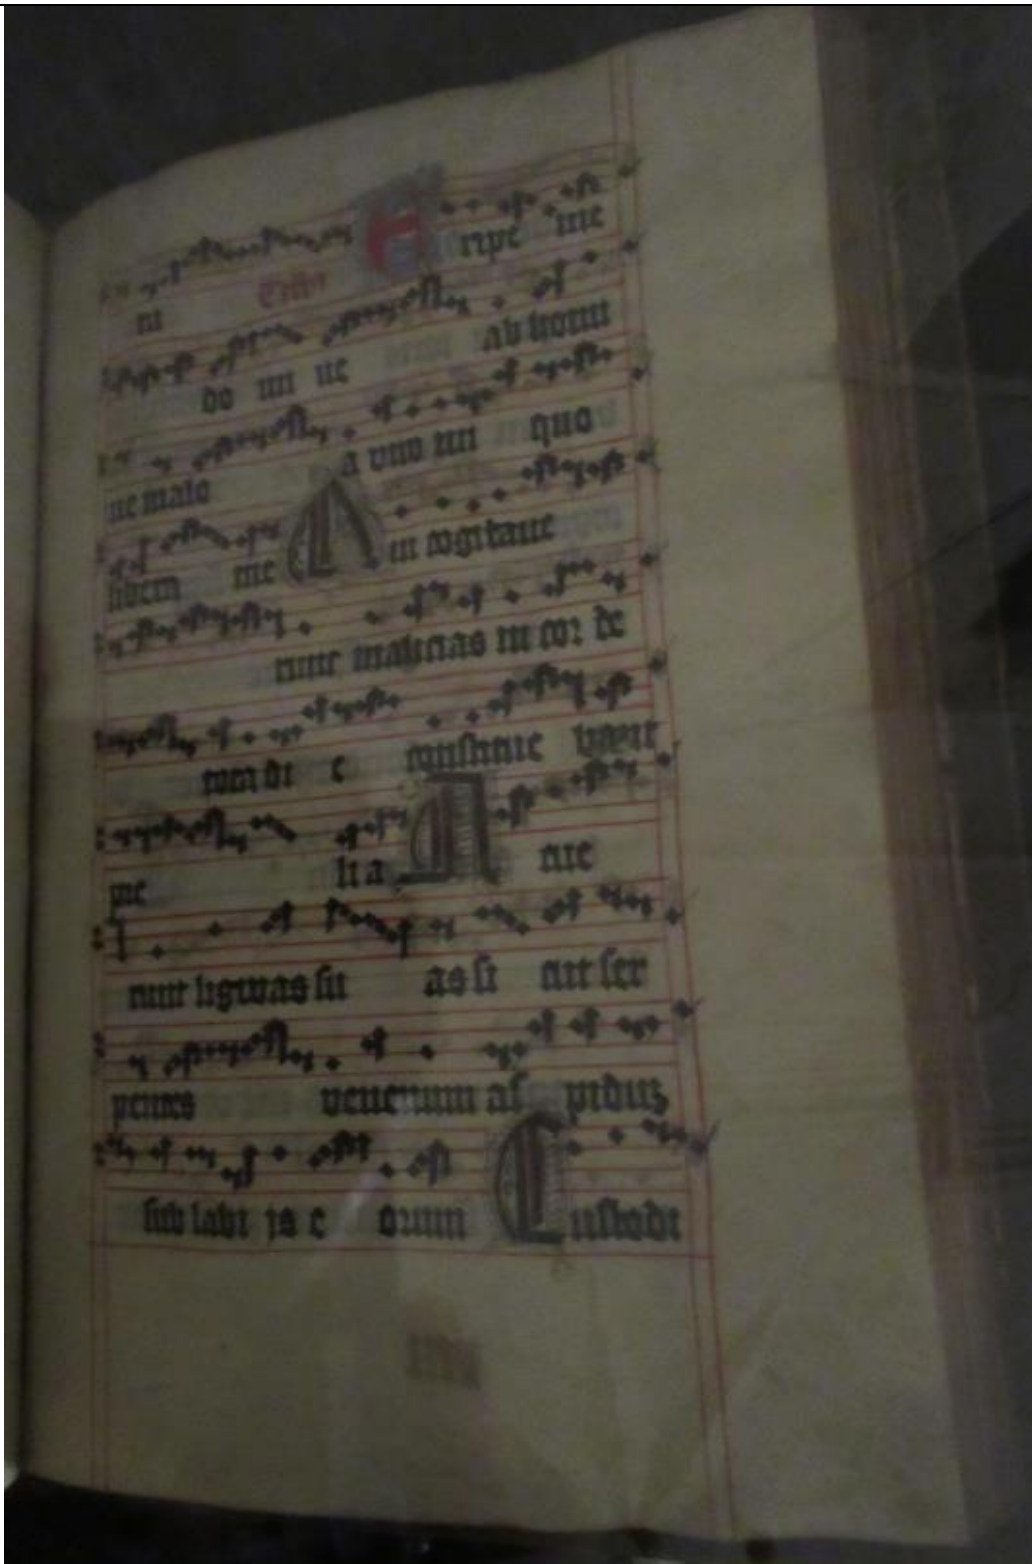 E ripe me
tu Tractus
do mi ne ab homi
ne malo a viro ini quo
libera me Q ui cogitave
runt malicias in cor de
tota di e constitue bant
pre li a A cue
runt ligwas su as si cut ser
pentes venenum as piduz
sub labi is e orum C ustodi